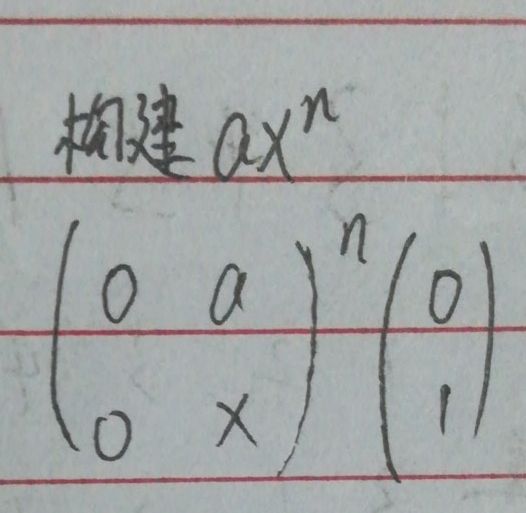 构建 ax^n
(0 a
0 x)^n (0
1)